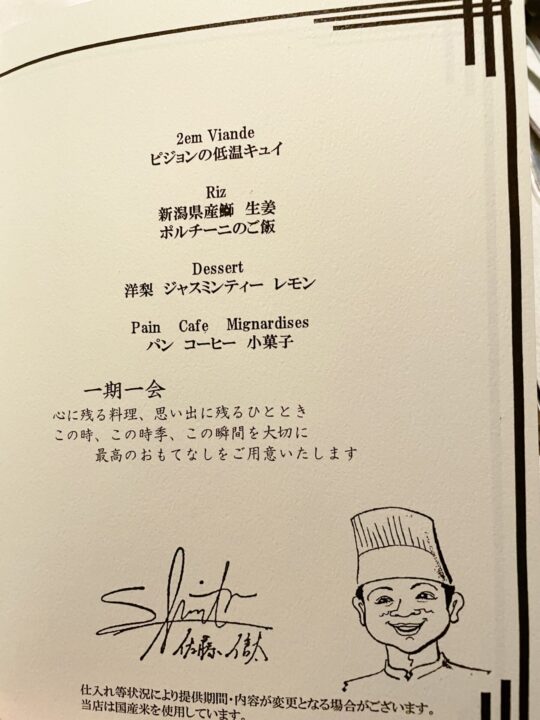 2em Viande
ピジョンの低温キュイ
Riz
新潟県産鰤 生姜
ポルチーニのご飯
Dessert
洋梨 ジャスミンティー レモン
Pain Cafe Mignardises
パン コーヒー 小菓子
一期一会
心に残る料理、思い出に残るひととき
この時、この時季、この瞬間を大切に
最高のおもてなしをご用意いたします
佐藤 信太
仕入れ等状況により提供期間・内容が変更となる場合がございます。
当店は国産米を使用しています。